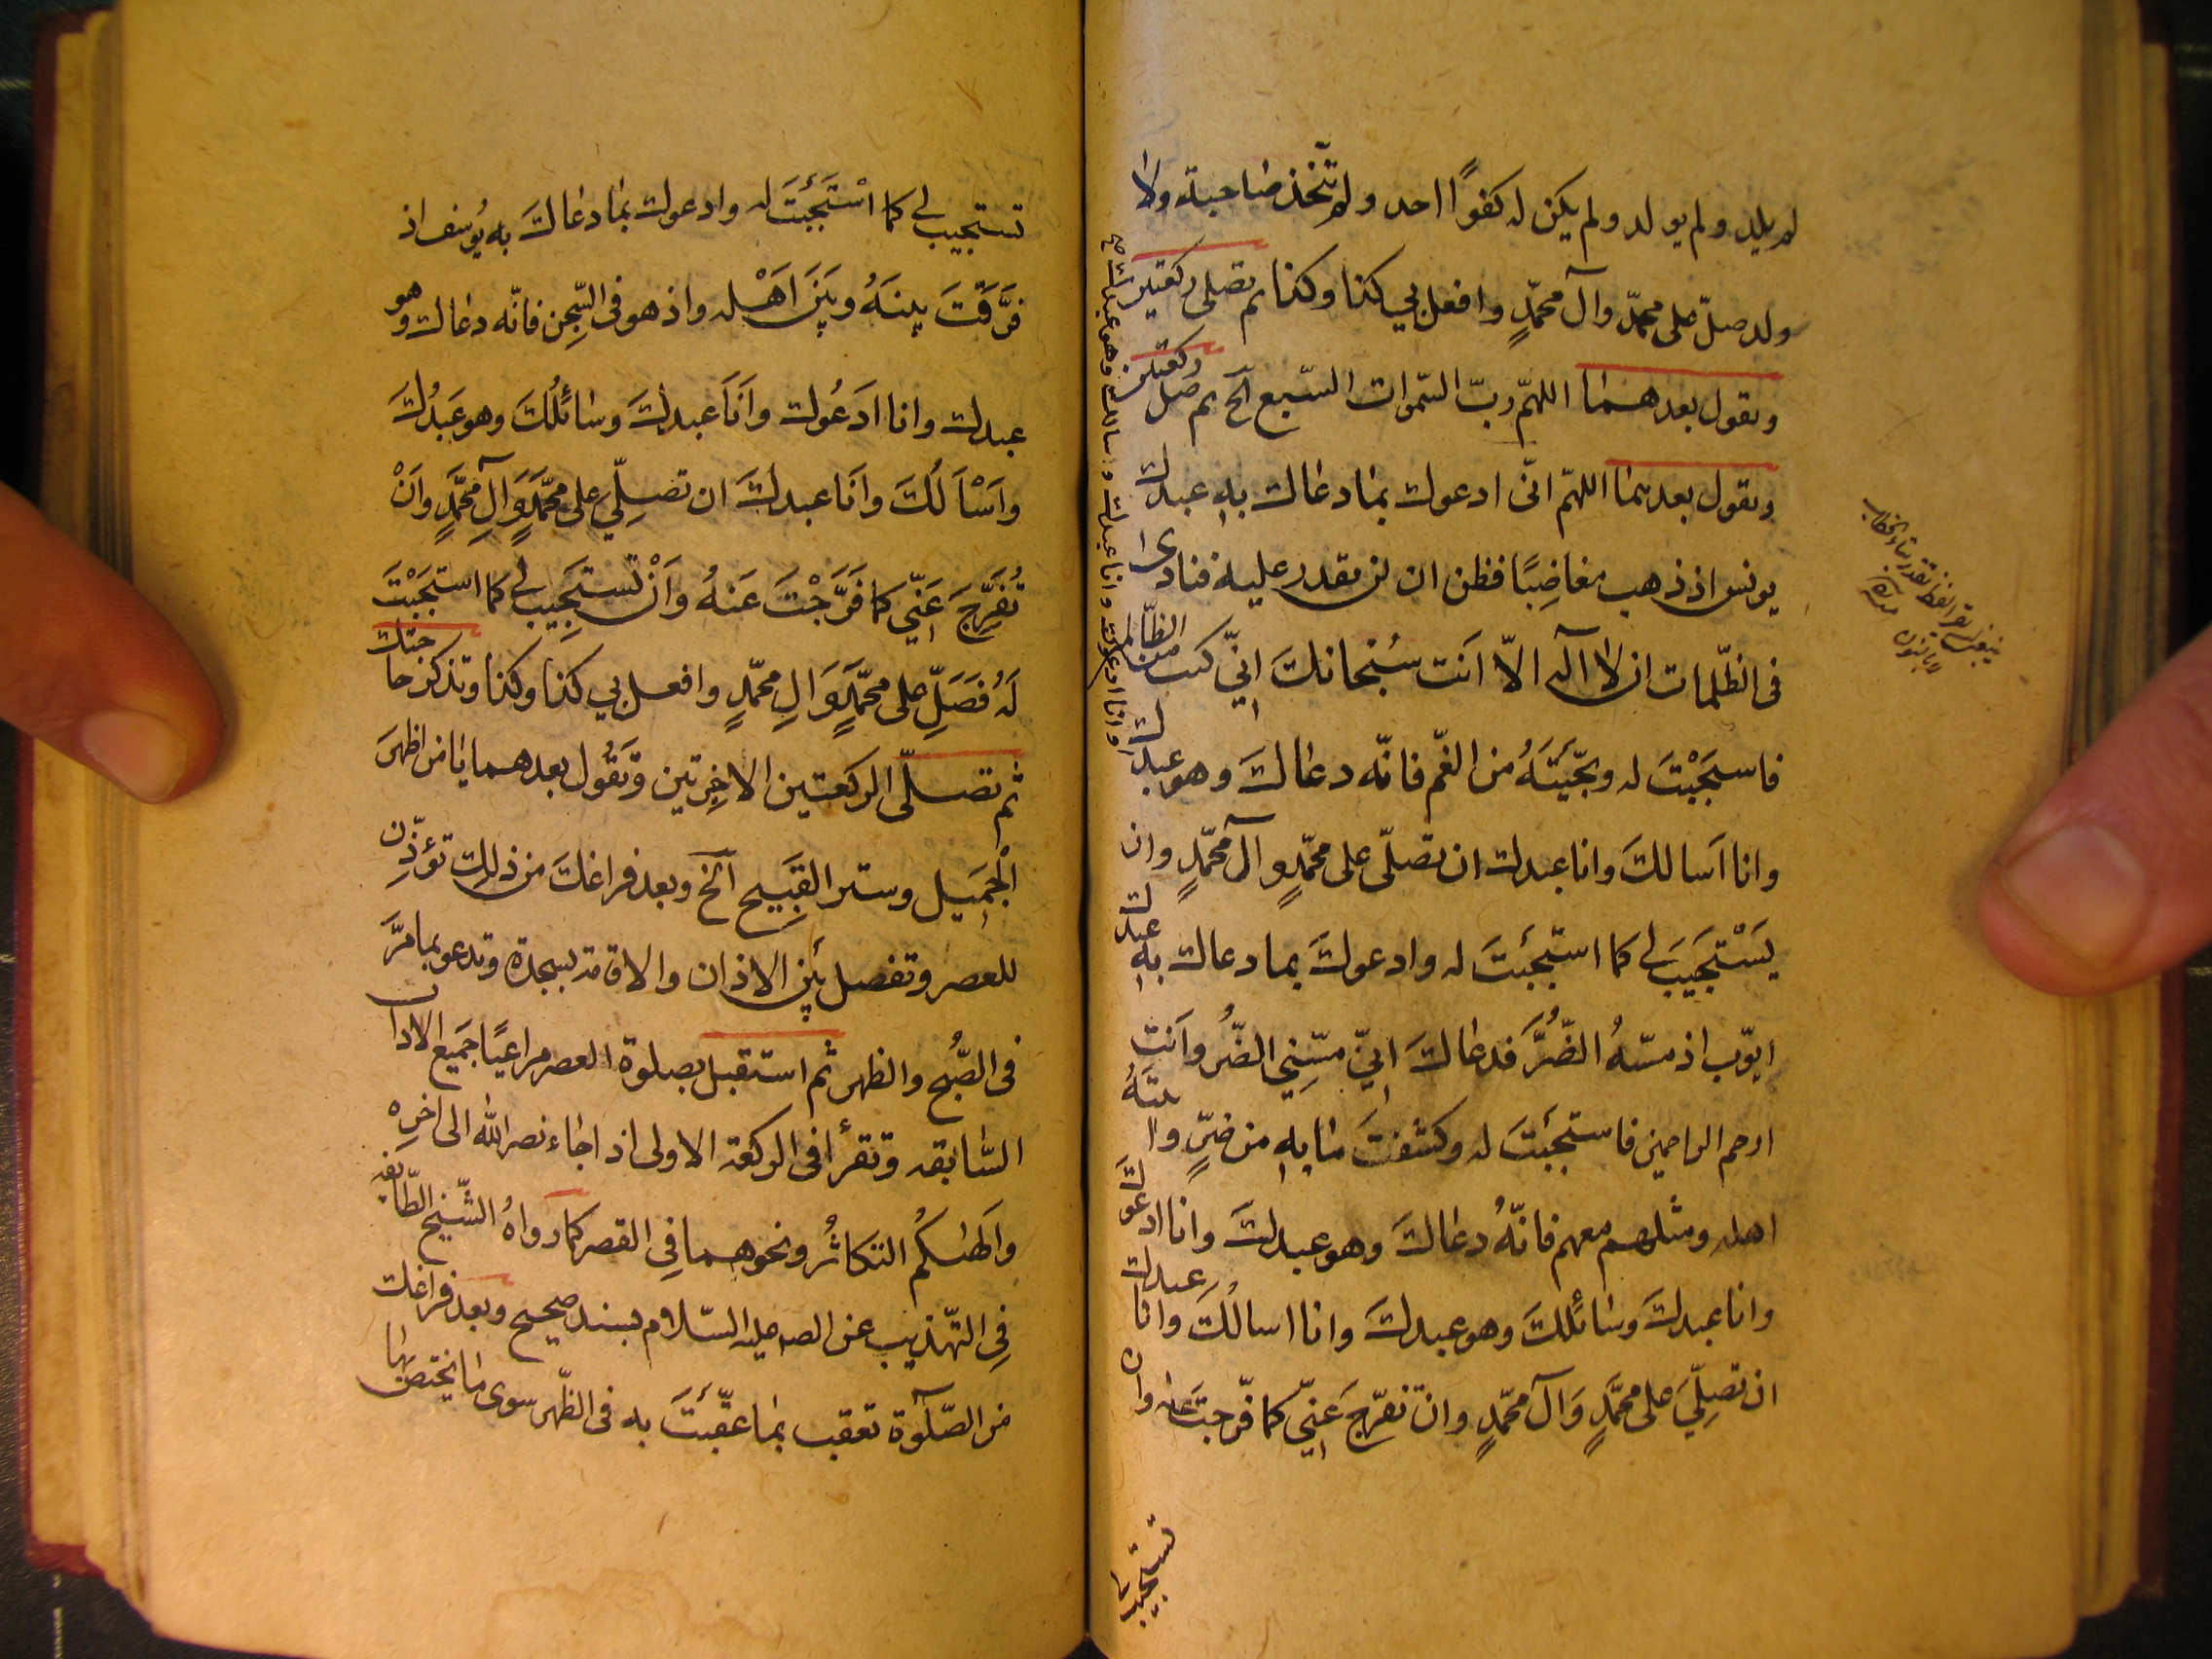 لم يلد ولم يولد ولم يكن له كفوًا احد ولم تتّخذ صاحبة ولا
ولد صلّ على محمّد وآل محمّدٍ وافعل بي كذا وكذا ثم تصلى ركعتين
وتقول بعدهما اللهمّ ربّ السّموات السّبع الخ ثم صل ركعتين
وتقول بعدهما اللهمّ انّى ادعوك بما دعاك به عبدك
يونس اذ ذهب مغاضِبًا فظن ان لن نقدر عليه فنادى
فى الظّلمات ان لا اله الاّ اَنت سُبْحانك اِنّي كنت من الظّالمين
فاستجَبْتَ له ونجّيْتَهُ من الغّم فانّه دعاكَ وهو عبدك
وانا اَسالكَ وانا عبدك ان تصلّى على محمّدٍ وآل محمّدٍ وان
يَسْتجَيبَ لي كما استجَبتَ له وادعوكَ بما دعاك به عبدك
ايّوب اذ مسّهُ الضّرُّ فدعاكَ اِنّي مسّنِي الضّرُ واَنت
ارحم الراحمين فاستجَبتَ له وكشفتَ ما بهِ من ضرٍّ واتيتهُ
اهله ومثلهم معهم فانّهُ دعاكَ وهو عبدكَ وانا ادعوكَ
وانا عبدكَ وسائلكَ وهو عبدكَ وانا اسالُكَ وانا عبدك
ان تصلِّيَ على محمَّدٍ وَآل محمّدٍ وان تفرّجَ عَنِّي كما فرّجتَ عنه وان
تستجيب
وانا ادعوك وانا عبدك وسائلك وهو عبدك صح
تستجيب لي كما اسْتَجَبْتَ له وادعوك بما دعاكَ به يُوسف اذ
فرَّقتَ بينَهُ وبَينَ اَهْله واذ هو فى السّجن فانّه دعاك وهو
عبدك وانا ادَعُوك واَنَا عبدكَ وسائلُكَ وهو عَبدُكَ
واَسْاَلُكَ واَنَا عبدكَ ان تصلِّي على محمَّدٍ وَآلِ محمَّدٍ واَنْ
تُفَرِّجَ عَنِّي كما فَرَّجْتَ عَنهُ واَنْ تستجَيبَ لي كما استجَبْتَ
لَهُ فَصَلِّ على محمَّدٍ وَالِ محمّدٍ وافعل بي كذا وكذا وتذكر حاجتك
ثم تصلّى الركعتين الاخِرتين وَتقُول بعدهما يا من اظهرَ
الْجمِيل وستر القَبِيح الخ وبعد فراغك من ذلك تؤذّن
للعصر وتفصل بَين الاذان والاقامة بسجدة وتدعو بما مرَّ
فى الصُّبح والظهر ثم استقبل بصلوة العصر مراعيًا جَميع الاداب
السّابقه وتقرأ فى الركعة الاولى اذا جاء نصر الله الى اخرِه
واَلهٰىكُم التكاثُر ونحوهما فِي القصر كما رواهُ الشّيخ الطّايفه
فِي التهّذيب عن الصه عليه السّلام بسند صحيح وبعد فراغك
من الصّلوة تعقب بما عقّبْتَ به فى الظّهر سوى ما يختصّ بها